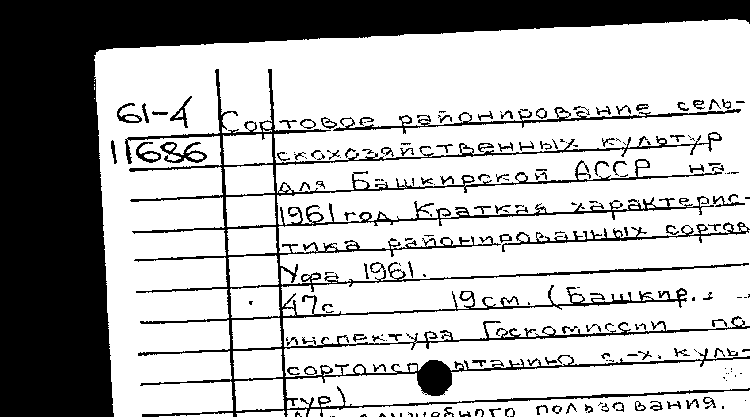 61-4
11686
Сортовое районирование сель-
скохозяйственных культур
для Башкирской АССР на
1961 год. Краткая характерис-
тика районированных сортов
Уфа, 1961.
47с. 19см. (Башкир.
инспектура Госкомиссии по
сортоиспытанию с.-х. куль-
тур).
служебного пользования.